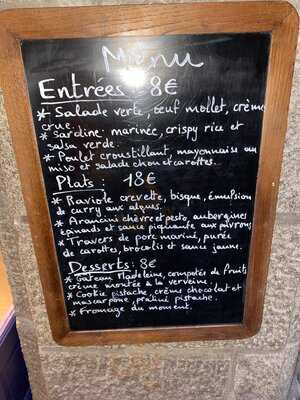 Menu
Entrées : 8€
* Salade verte, œuf mollet, crème
crue.
* Sardine marinée, crispy rice et
salsa verde.
* Poulet croustillant, mayonnaise au
miso et salade chou et carottes.
Plats : 18€
* Raviole crevette, bisque, émulsion
de curry aux algues.
* Arancini chèvre et pesto, aubergines
épinards et sauce piquante aux poivrons
* Travers de porc mariné, purée
de carottes, brocolis et sauce jaune.
Desserts : 8€
* Gateau Madeleine, compotés de fruits
crème montée à la verveine.
* Cookie pistache, crème chocolat et
mascarpone, praliné pistache.
* Fromage du moment.